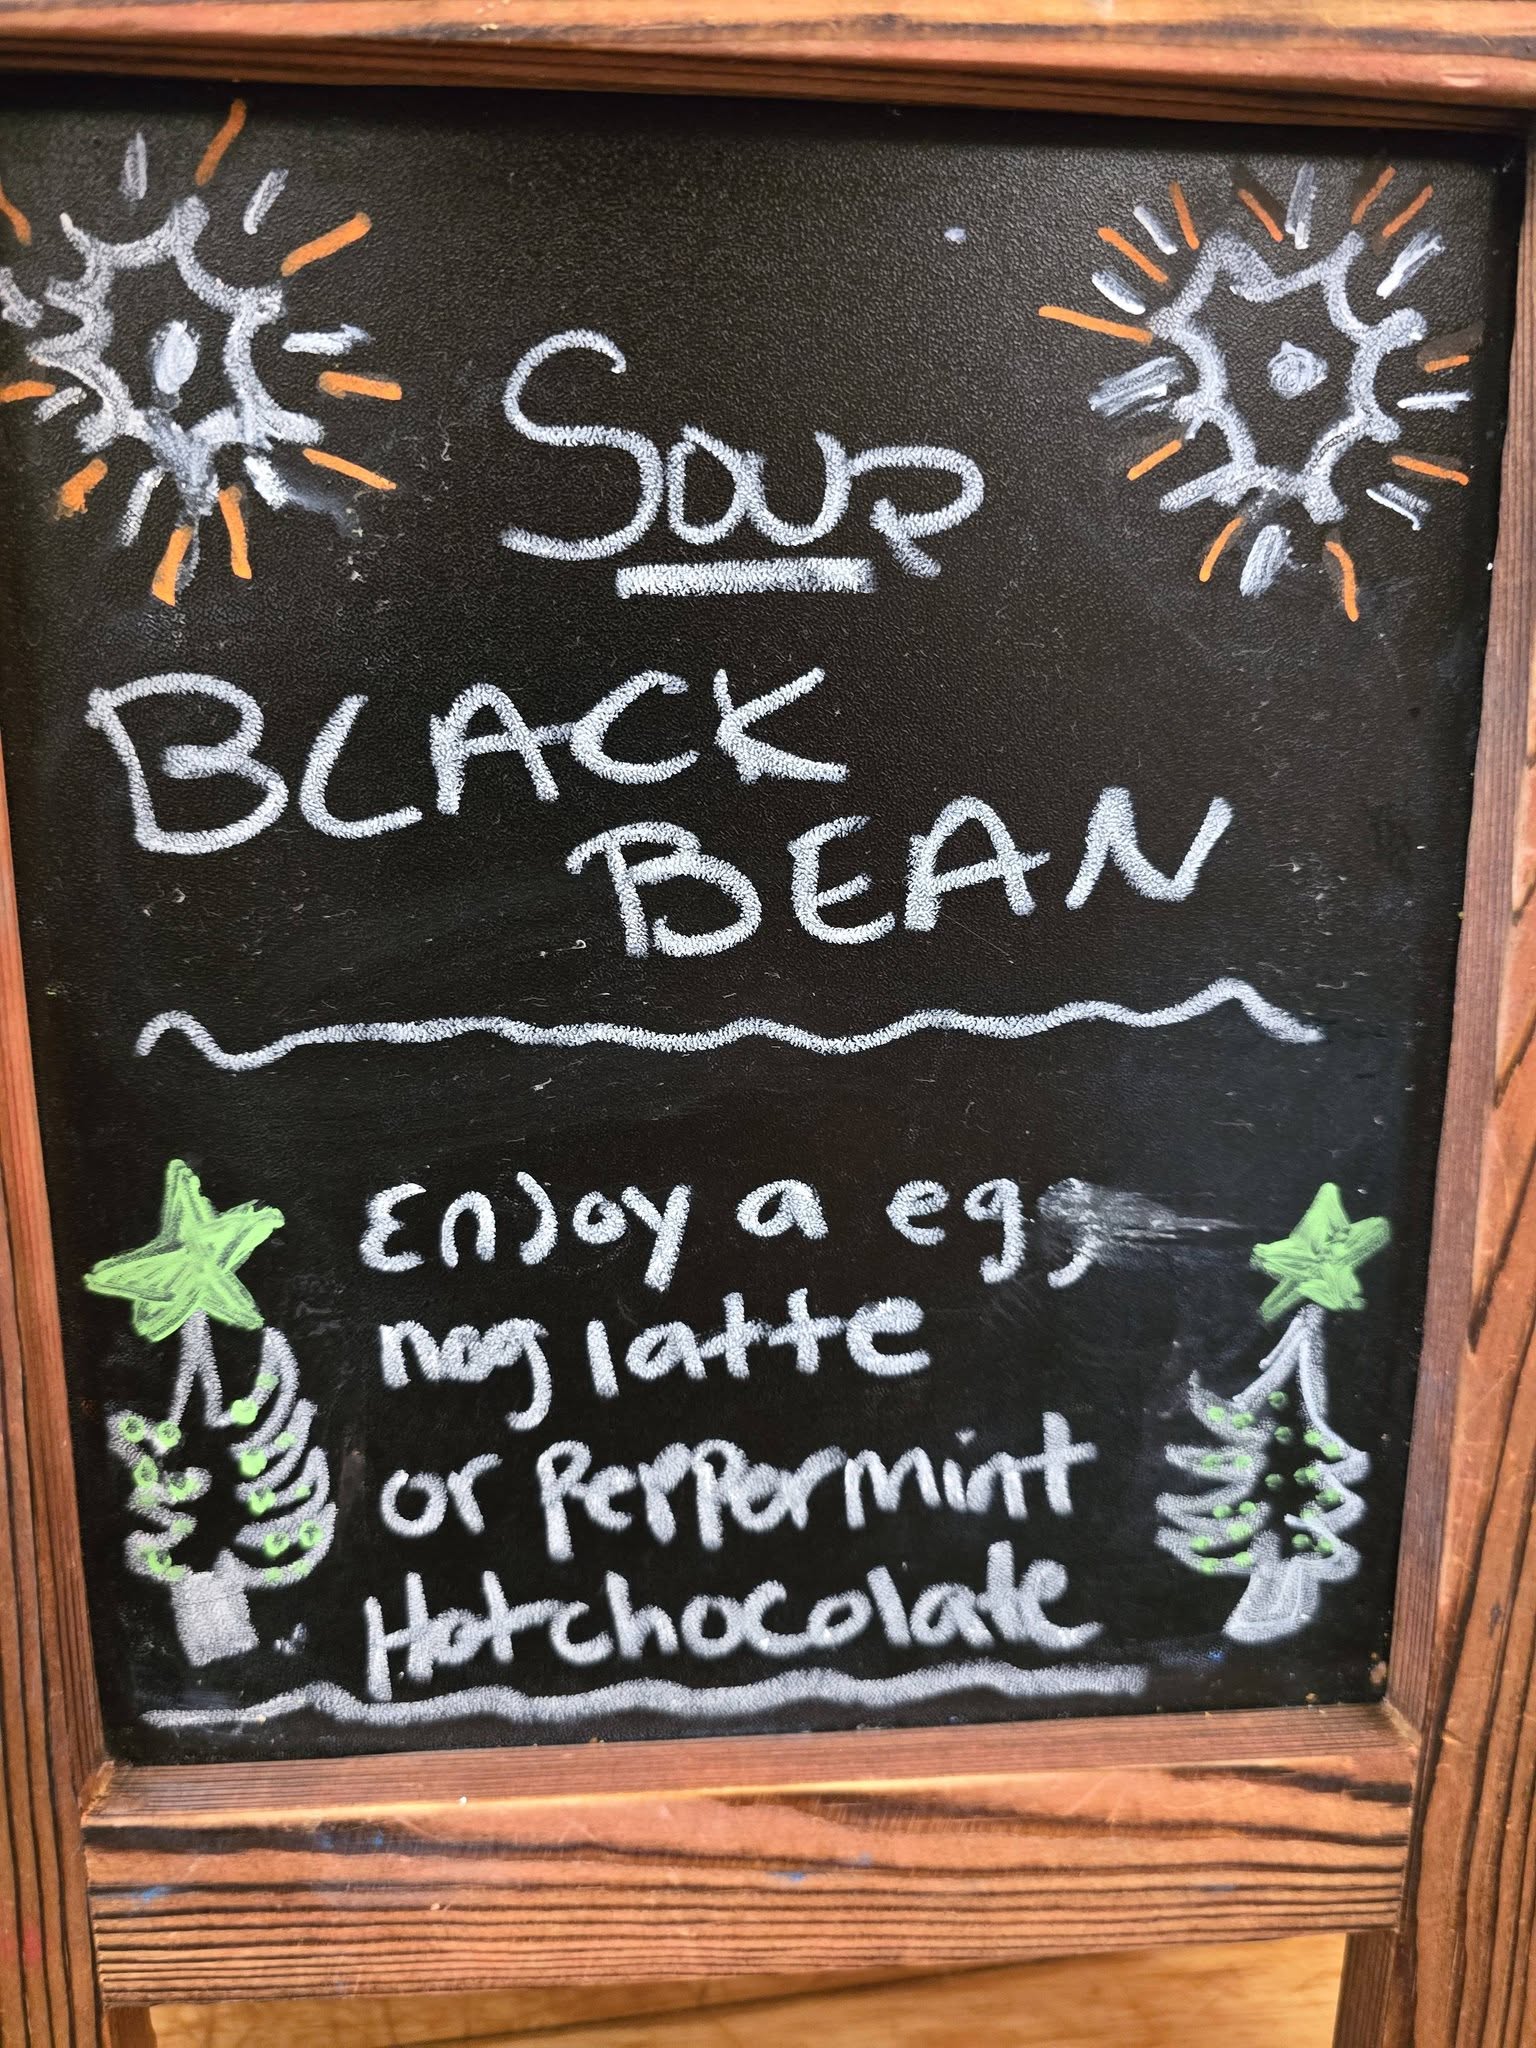 Soup
BLACK
BEAN
Enjoy a egg
nog latte
or Peppermint
Hot chocolate